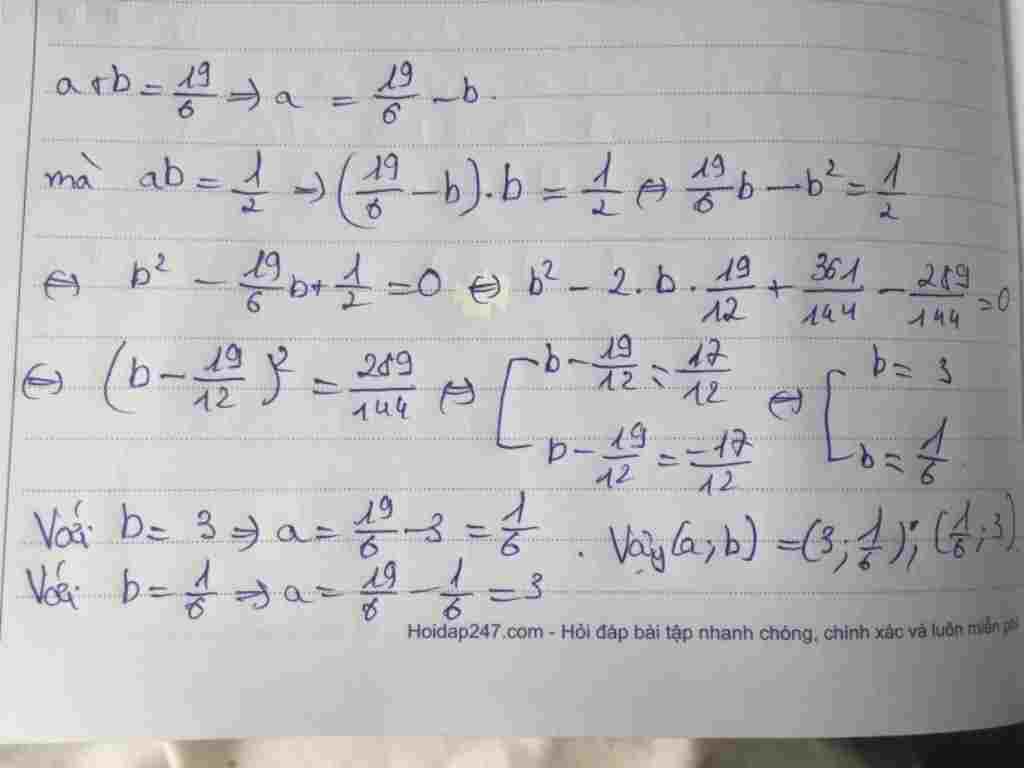 a + b = 19/6 => a = 19/6 - b.
mà ab = 1/2 => (19/6 - b).b = 1/2 <=> 19/6 b - b² = 1/2
<=> b² - 19/6 b + 1/2 = 0 <=> b² - 2.b.19/12 + 361/144 - 289/144 = 0
<=> (b - 19/12)² = 289/144 <=> [b - 19/12 = 17/12 <=> [b = 3
b - 19/12 = -17/12 b = 1/6
Với b = 3 => a = 19/6 - 3 = 1/6 . Vậy (a; b) = (3; 1/6); (1/6; 3)
Với b = 1/6 => a = 19/6 - 1/6 = 3
Hoidap247.com - Hỏi đáp bài tập nhanh chóng, chính xác và luôn miễn phí